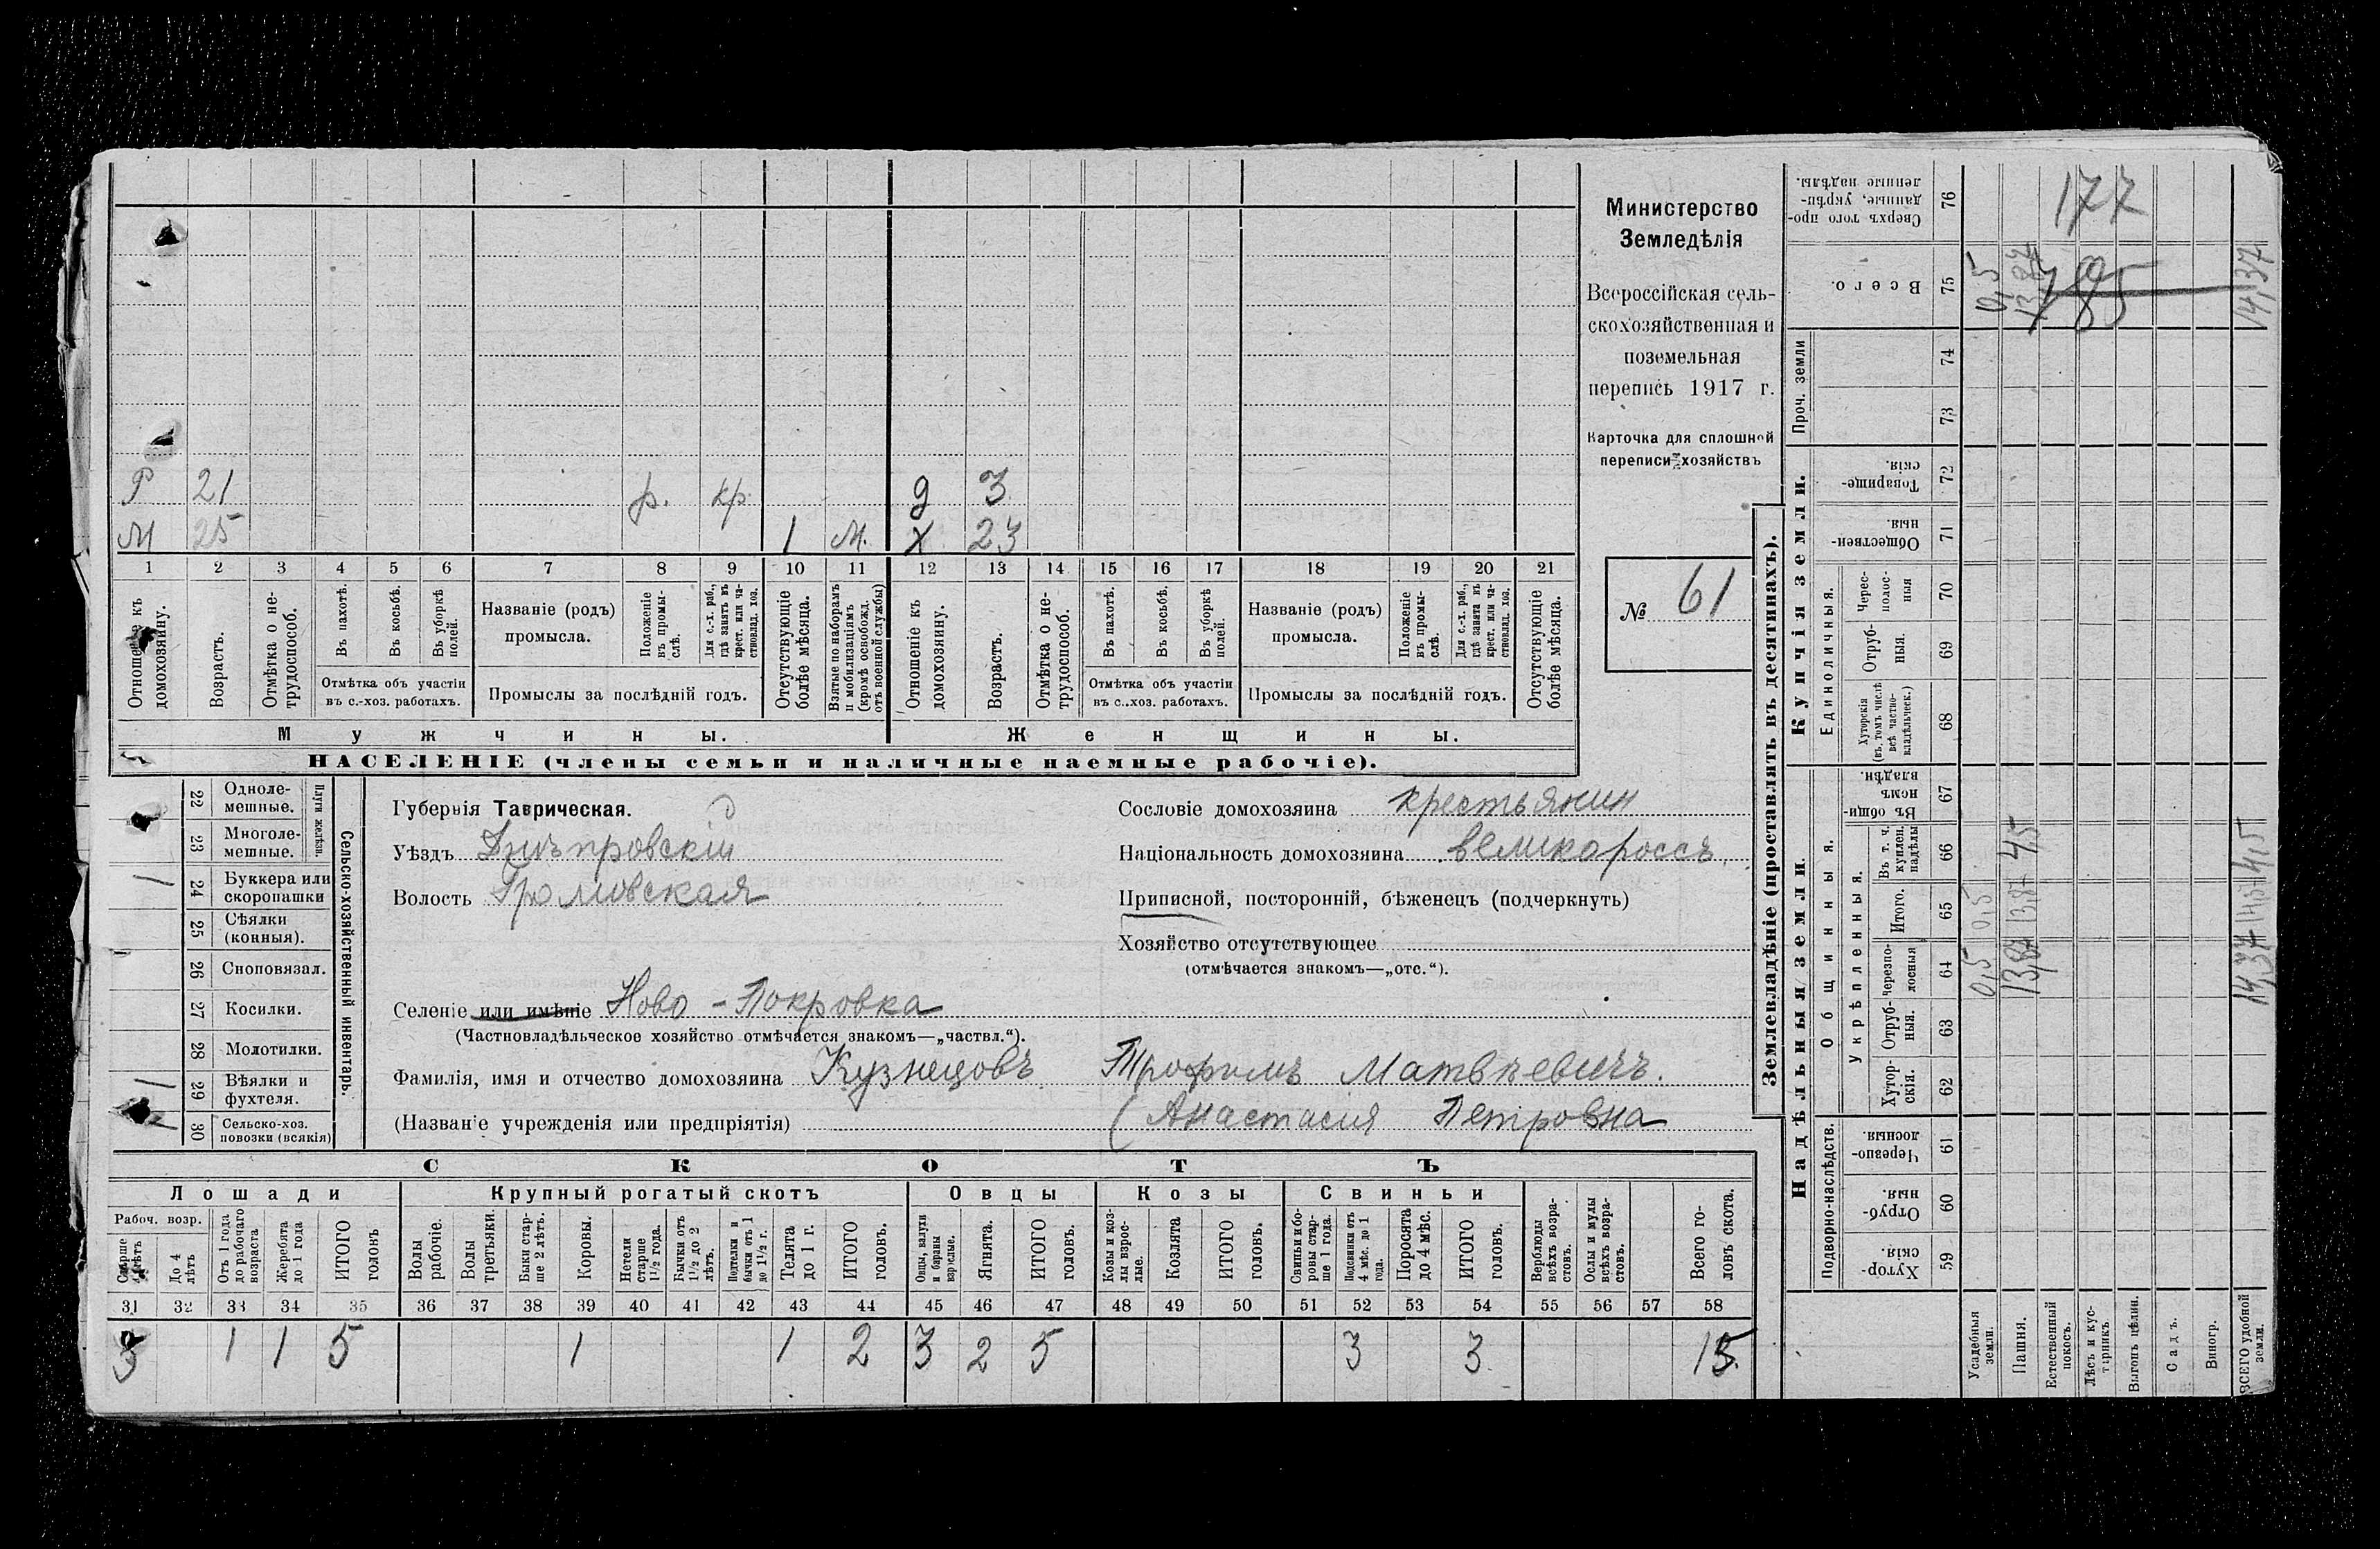 Р 21 р. кр. д 3
М 25 1 М. х 23
1 2 3 4 5 6 7 8 9 10 11 12 13 14 15 16 17 18 19 20 21
Отношеніе къ домохозяину.
Возрастъ.
Отмѣтка о не-
трудоспособ.
Въ пахотѣ.
Въ косьбѣ.
Въ уборкѣ
полей.
Отмѣтка объ участіи
въ с.-хоз. работахъ.
Названіе (родъ)
промысла.
Положеніе
въ промы-
слѣ.
Для с.-х. раб.,
гдѣ занятъ въ
крест. или ча-
стновлад. хоз.
Промыслы за послѣдній годъ.
Отсутствующіе
болѣе мѣсяца.
Взятые по наборамъ
и мобилизаціямъ
(кромѣ освобожд.
отъ военной службы)
Отношеніе къ
домохозяину.
Возрастъ.
Отмѣтка о не-
трудоспособ.
Въ пахотѣ.
Въ косьбѣ.
Въ уборкѣ
полей.
Отмѣтка объ участіи
въ с..хоз. работахъ.
Названіе (родъ)
промысла.
Положеніе
въ промы-
слѣ.
Для с.-х. раб.,
гдѣ занята въ
крест. или ча-
стновлад. хоз.
Промыслы за послѣдній годъ.
Отсутствующіе
болѣе мѣсяца.
Мужчины. Женщины.
НАСЕЛЕНІЕ (члены семьи и наличные наемные рабочіе).
Министерство
Земледѣлія
Всероссійская сель-
скохозяйственная и
поземельная
перепись 1917 г.
Карточка для сплошной
переписи хозяйствъ
№ 61
22 Одноле-
мешные.
23 Многоле-
мешные.
Плуги желѣзн.
1 24 Буккера или
скоропашки
25 Сѣялки
(конныя).
26 Сноповязал.
27 Косилки.
28 Молотилки.
1 29 Вѣялки и
фухтеля.
1 30 Сельско-хоз.
повозки (всякія)
Сельско-хозяйственный инвентарь.
Губернія Таврическая.
Уѣздъ Днѣпровскій
Волость Громовская
Селеніе или имѣніе Ново-Покровка
(Частновладѣльческое хозяйство отмѣчается знакомъ—„частвл.“).
Фамилія, имя и отчество домохозяина Кузнецовъ Трофимъ Матвѣевичъ.
(Названіе учрежденія или предпріятія) (Анастасія Петровна
Сословіе домохозяина крестьянин
Національность домохозяина великороссъ.
Приписной, посторонній, бѣженецъ (подчеркнуть)
Хозяйство отсутствующее
(отмѣчается знакомъ—„отс.“).
СКОТЪ
Лошади
Крупный рогатый скотъ
Овцы
Козы
Свиньи
Рабоч. возр.
Старше 4 лѣтъ
До 4
лѣтъ
Отъ 1 года
до рабочаго
возраста
Жеребята
до 1 года
ИТОГО
головъ
Волы
рабочіе.
Волы
третьяки.
Быки стар-
ше 2 лѣтъ.
Коровы.
Нетели
старше
1½ года.
Бычки отъ
1½ до 2
лѣтъ.
Подтелки и
бычки отъ 1
до 1½ г.
Телята
до 1 г.
ИТОГО
головъ.
Овцы, валухи
и бараны
взрослые.
Ягнята.
ИТОГО
головъ.
Козы и коз-
лы взрос-
лые.
Козлята
ИТОГО
головъ.
Свиньи и бо-
ровы стар-
ше 1 года.
Подсвинки отъ
4 мѣс. до 1
года.
Поросята
до 4 мѣс.
ИТОГО
головъ.
Верблюды
всѣхъ возра-
стовъ.
Ослы и мулы
всѣхъ возра-
стовъ.
Всего го-
ловъ скота.
31 32 33 34 35 36 37 38 39 40 41 42 43 44 45 46 47 48 49 50 51 52 53 54 55 56 57 58
3 1 1 5 1 1 2 3 2 5 3 3 15.
Землевладѣніе (проставлять въ десятинахъ).
Надѣльныя земли
Купчія земли.
Подворно-наслѣдств.
Общинныя.
Укрѣпленныя.
Единоличныя.
Проч. земли
Сверхъ того про-
данные, укрѣп-
ленные надѣлы.
76
Всего.
75
74
73
Товарище-
скія.
72
Обществен-
ныя.
71
Черес-
полос-
ныя
70
Отруб-
ныя.
69
Хуторскія
(въ томъ числѣ
всѣ частно-
владѣльческ.)
68
Въ общи
номъ
владѣн.
67
Въ т. ч.
куплен.
надѣлы
66
Итого.
65
Черезпо-
лосныя
64
Отруб-
ныя.
63
Хутор-
скія.
62
Черезпо-
лосныя.
61
Отруб-
ныя.
60
Хутор-
скія.
59
Усадебныя
земли. 0,5 0,5 0,5
Пашня. 13,87 13,87 4,5 13,87
Естественный
покосъ.
Лѣсъ и кус-
тарникъ.
Выгонъ цѣлин.
Садъ.
Виногр.
ВСЕГО удобной
земли. 14,37 14,37 4,5 14,37
177
185